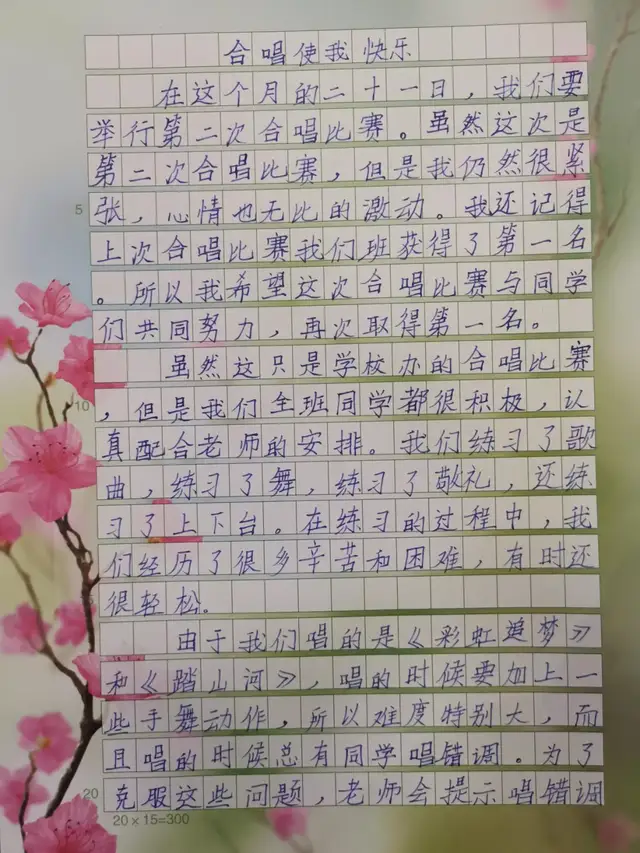 合唱使我快乐
在这个月的二十一日，我们要
举行第二次合唱比赛。虽然这次是
第二次合唱比赛，但是我仍然很紧
5
张，心情也无比的激动。我还记得
上次合唱比赛我们班获得了第一名
。所以我希望这次合唱比赛与同学
们共同努力，再次取得第一名。
虽然这只是学校办的合唱比赛
10
，但是我们全班同学都很积极，认
真配合老师的安排。我们练习了歌
曲，练习了舞，练习了敬礼，还练
习了上下台。在练习的过程中，我
们经历了很多辛苦和困难，有时还
很轻松。
由于我们唱的是《彩虹追梦》
和《踏山河》，唱的时候要加上一
些手舞动作，所以难度特别大，而
且唱的时候总有同学唱错调。为了
20
克服这些问题，老师会提示唱错调
20×15=300